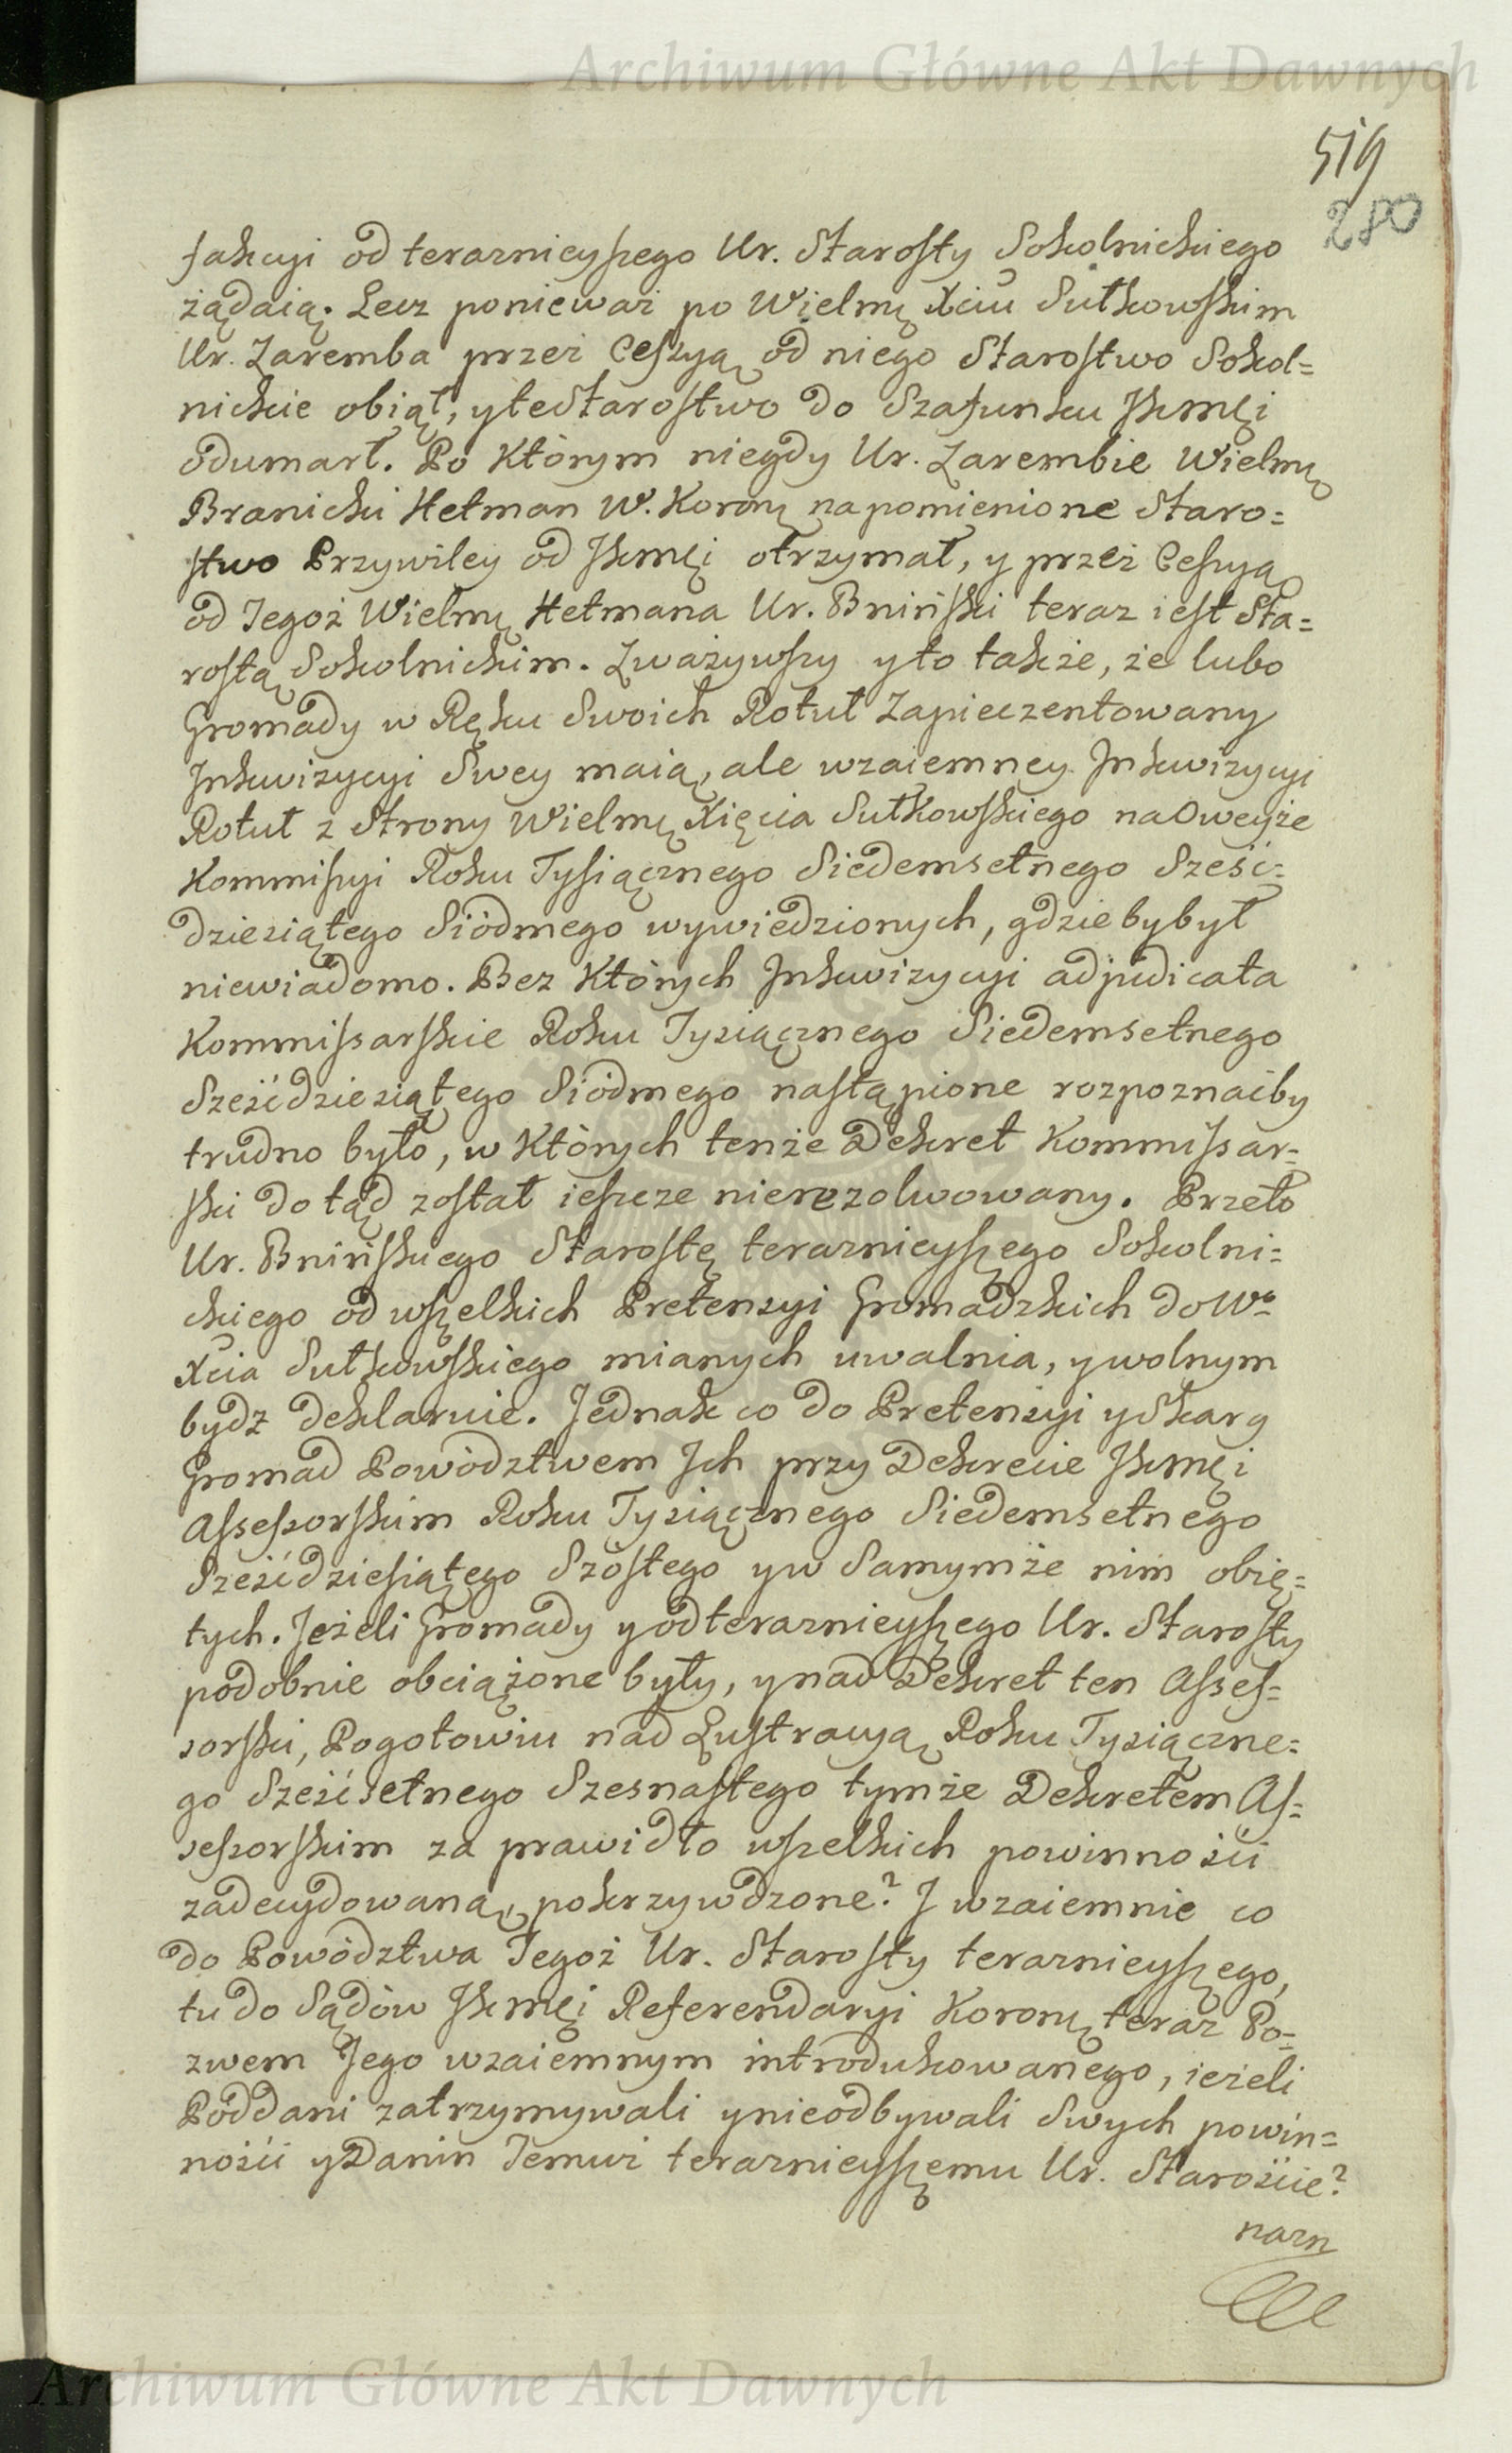 Archiwum Główne Akt Dawnych
519
280
fakcyi od teraznieyszego Ur. Starosty Sokolnickiego
żądaią. Lecz ponieważ po Wielmę Xciu Sułkowskim
Ur. Zaremba przez Cessyą od niego Starostwo Sokol=
nickie obiął, y te Starostwo do Szafunku JKmęi
odumarł. Po którym niegdy Ur. Zarembie Wielmę
Branicki Hetman W. Koronę na pomienione Staro=
stwo Przywiley od JKmęi otrzymał, y przez Cessyą
od Tegoż Wielmę Hetmana Ur. Bniński teraz iest Sta=
rostą Sokolnickim. Zważywszy y to także, że lubo
Gromady w Ręku Swoich Rotuł Zapieczentowany
Jnkwizycyi Swey maią, ale wzaiemney Jnkwizycyi
Rotuł z Strony Wielmę Xięcia Sułkowskiego na Oweyże
Kommissyi Roku Tysiącznego Siedemsetnego Sześć=
dziesiątego Siódmego wywiedzionych, gdzieby był
niewiadomo. Bez których Jnkwizycyi adjudicata
Kommissarskie Roku Tysiącznego Siedemsetnego
Sześćdziesiątego Siódmego nastąpione rozpoznaćby
trudno było, w których tenże Dekret Kommissar=
ski do tąd został ieszcze nierezolwowany. Przeto
Ur. Bnińskiego Starostę teraznieyszego Sokolni=
ckiego od wszelkich Pretensyi Gromadzkich do Wo
Xcia Sułkowskiego mianych uwalnia, y wolnym
bydz deklaruie. Jednak co do Pretensyi y Skarg
Gromad Powodztwem Jch przy Dekrecie JKmęi
Assessorskim Roku Tysiącznego Siedemsetnego
Sześćdziesiątego Szóstego y w Samymże nim obię=
tych. Jeżeli Gromady y od teraznieyszego Ur. Starosty
podobnie obciążone były, y nad Dekret ten Asses=
sorski, Pogotowiu nad Lustracyą Roku Tysiączne=
go Sześćsetnego Szesnastego tymże Dekretem As=
sessorskim za prawidło wszelkich powinności
zadecydowaną, pokrzywdzone? J wzaiemnie co
do Powództwa Tegoż Ur. Starosty teraznieyszego,
tu do Sądów JKmęi Referendaryi Koronę teraz Po=
zwem Jego wzaiemnym introdukowanego, ieżeli
Poddani zatrzymywali y nieodbywali Swych powin=
ności y Danin Temuż teraznieyszemu Ur. Staroście?
nazn
Archiwum Główne Akt Dawnych